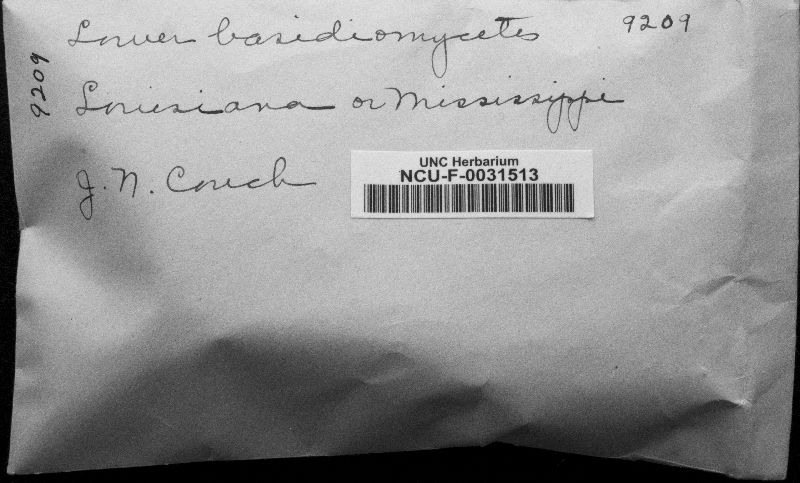 Lower basidiomycetes 9209
9209
Louisiana or Mississippi
J. N. Couch
UNC Herbarium
NCU-F-0031513